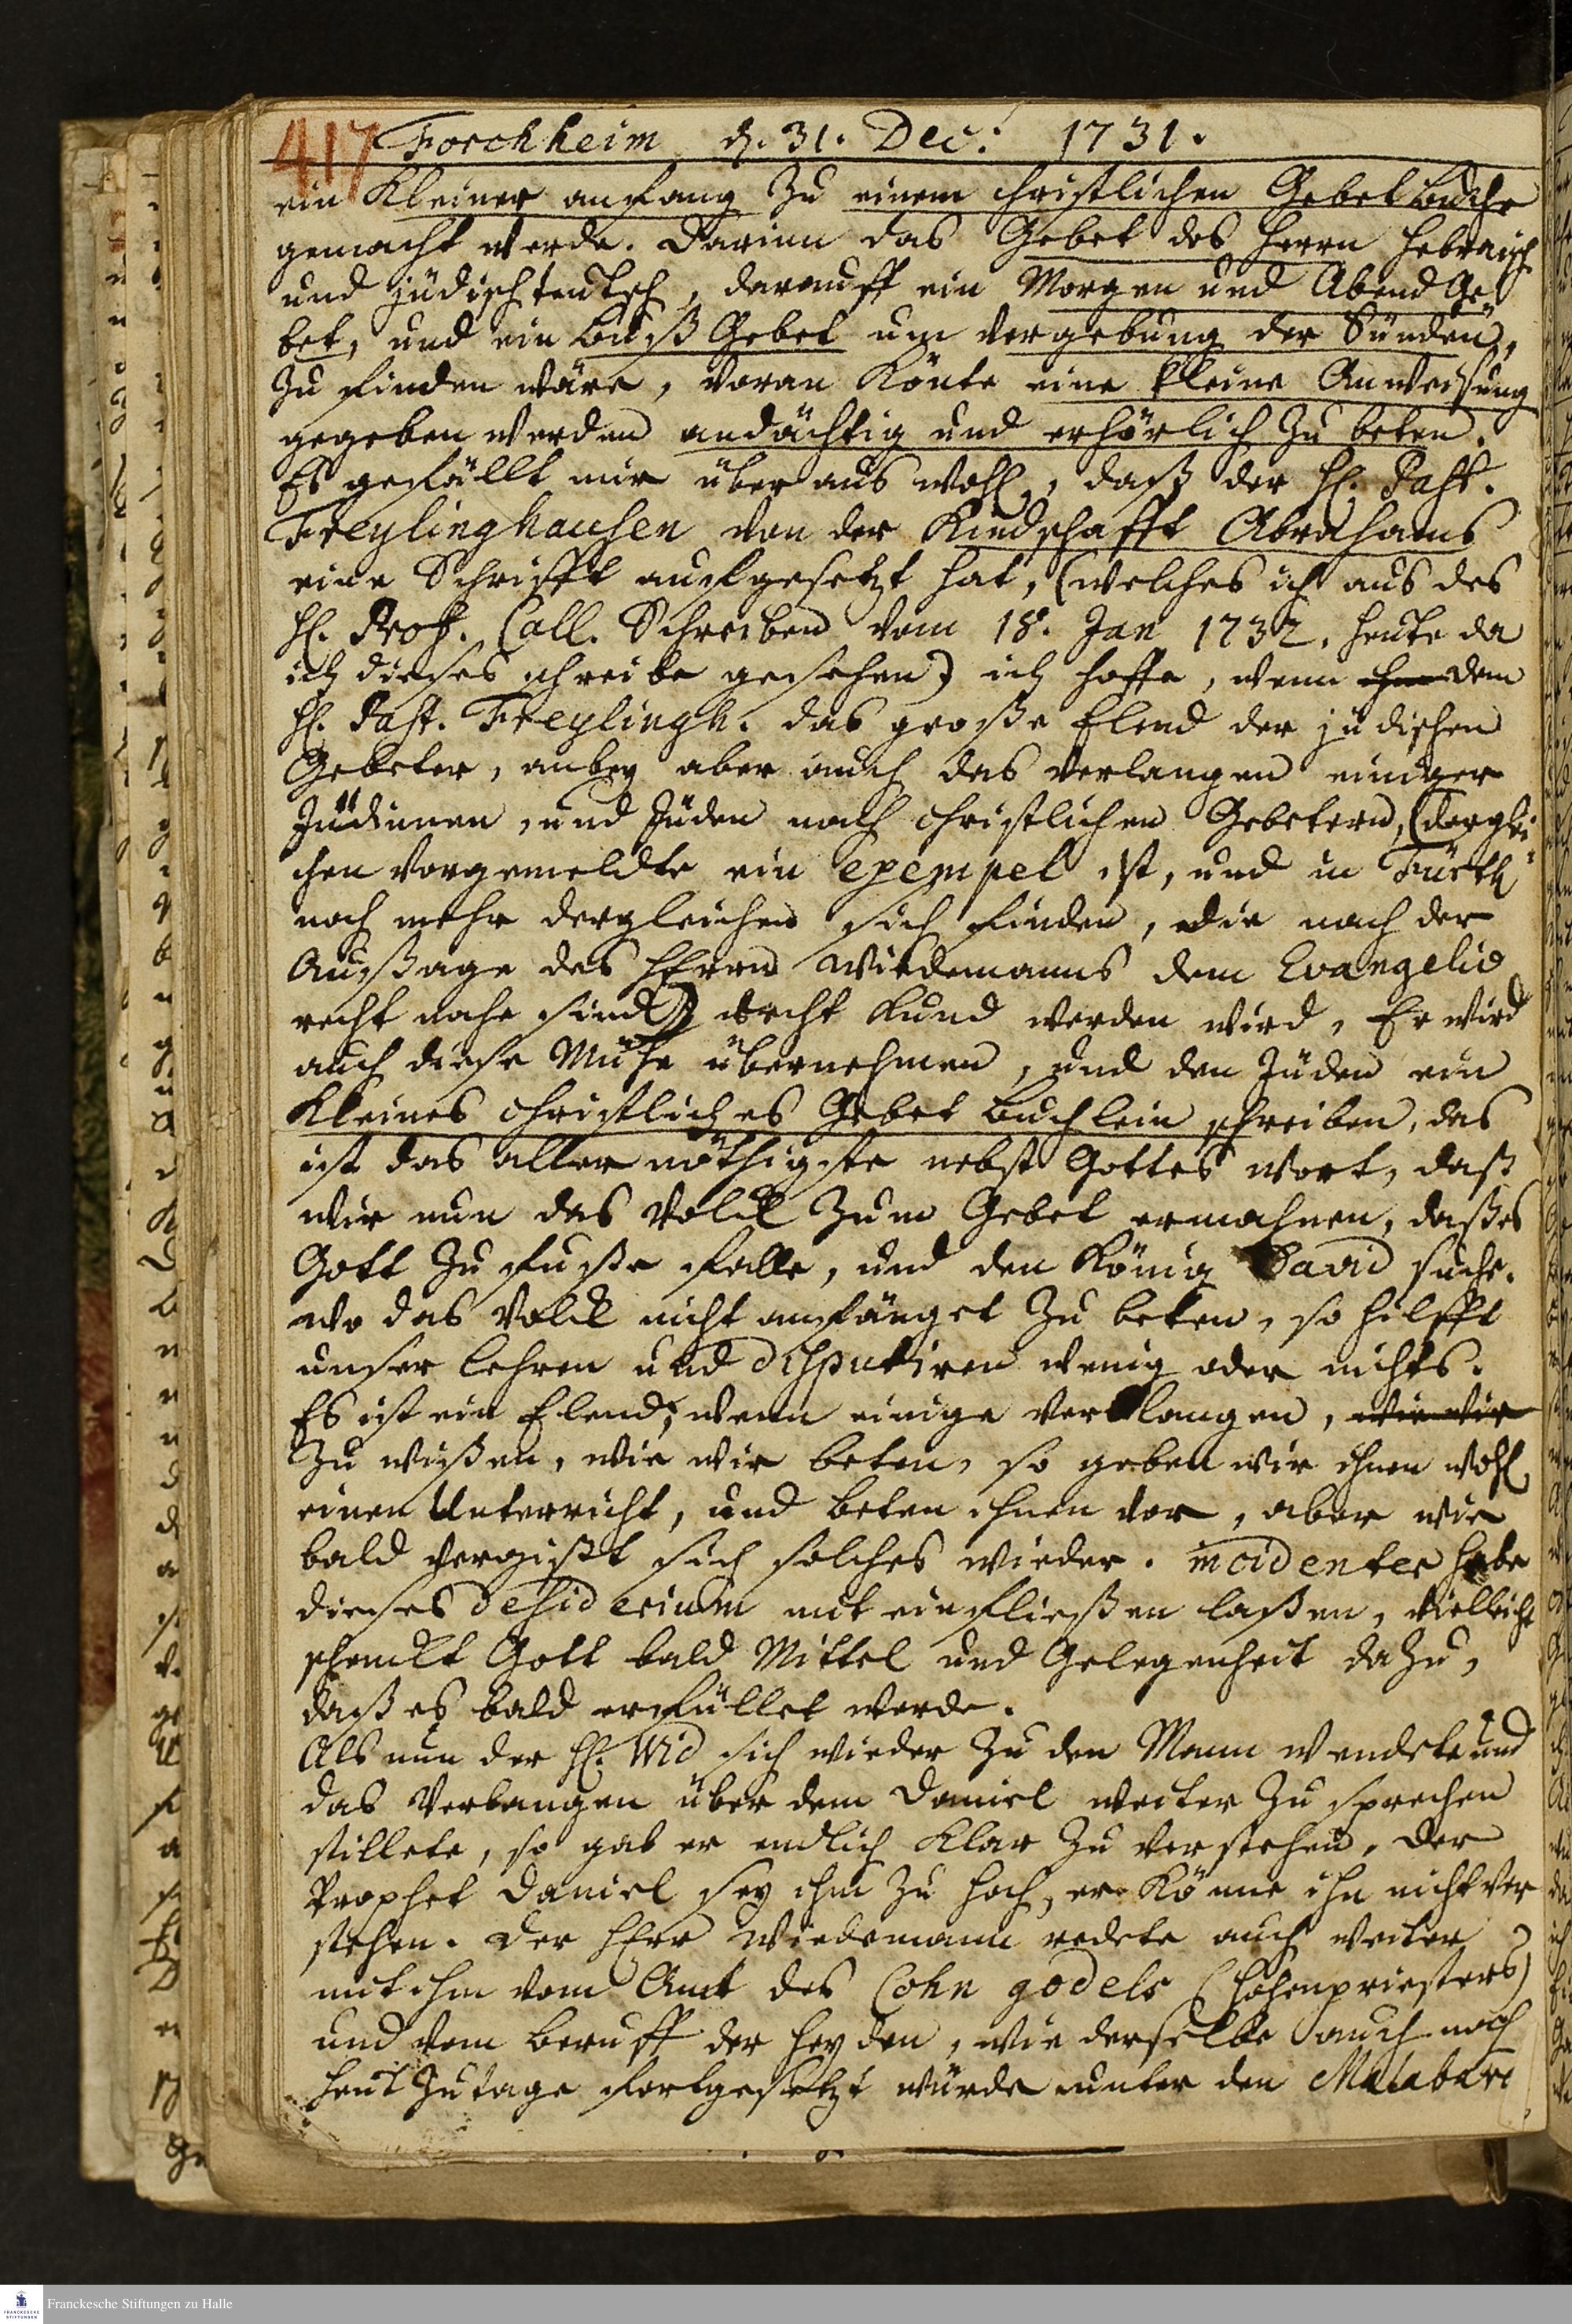 417 Forchheim d. 31. Dec: 1731.
ein Kleiner anfang zu einem christlichen Gebetbuche
gemacht werde. Darinn das Gebet des Herrn hebraisch
und jüdischteutsch, darauff ein Morgen und Abend Ge-
bet, und ein Buß Gebet um Vergebung der Sünden,
zu finden wäre, voran könte eine kleine Anweisung
gegeben werden andächtig und erhörlich zu beten.
Es gefällt mir über aus wohl, daß der H. Past.
Freylinghausen von der Kindschafft Abrahams
eine Schrifft auffgesetzt hat, (welches ich aus des
H. Prof. Call. Schreiben vom 18. Jan 1732. heute da
ich dieses schreibe gesehen) ich hoffe, wenn dem
H. Past. Freylingh. das große Elend der jüdischen
Gebeter, anbey aber auch das Verlangen einiger
Jüdinnen, und Juden nach christlichen Gebetern, (derglei-
chen vorgemeldte ein exempel ist, und in Fürth
noch mehr dergleichen sich finden, die nach der
Aussage des Herrn Wiedemanns dem Evangelio
recht nahe sind) recht kund werden wird, Er wird
auch diese Mühe übernehmen, und den Juden ein
Kleines christliches Gebet Buchlein schreiben, das
ist das aller nöthigste nebst Gottes Wort, daß
wir nun das Volck zum Gebet ermahnen, daßes
Gott zu fusse falle, und den König David suche.
Wo das Volck nicht anfänget zu beten, so hilfft
unser Lehren und disputiren wenig oder nichts.
Es ist ein Elend, wenn einige verlangen, wie wir
zu wißen, wie wir beten, so geben wir ihnen wohl
einen Unterricht, und beten ihnen vor, aber wie
bald vergißt sich solches wieder. incidenter habe
dieses desiderium mit einfließen laßen, vielleicht
schenckt Gott bald Mittel und Gelegenheit dazu,
daß es bald erfüllet werde.
Als nun der H. Wid sich wieder zu den Mann wendete und
das Verlangen über dem Daniel weiter zu sprechen
stillete, so gab er endlich klar zu verstehen, der
Prophet Daniel sey ihm zu hoch, er könne ihn nicht ver
stehen. Der Herr Wiedemann redete auch weiter
mit ihm vom Amt des Cohn godels (Hohenpriesters)
und vom Beruff der Heyden, wie derselbe auch noch
heut zutage fortgesetzt würde unter den Malabare
Franckesche Stiftungen zu Halle